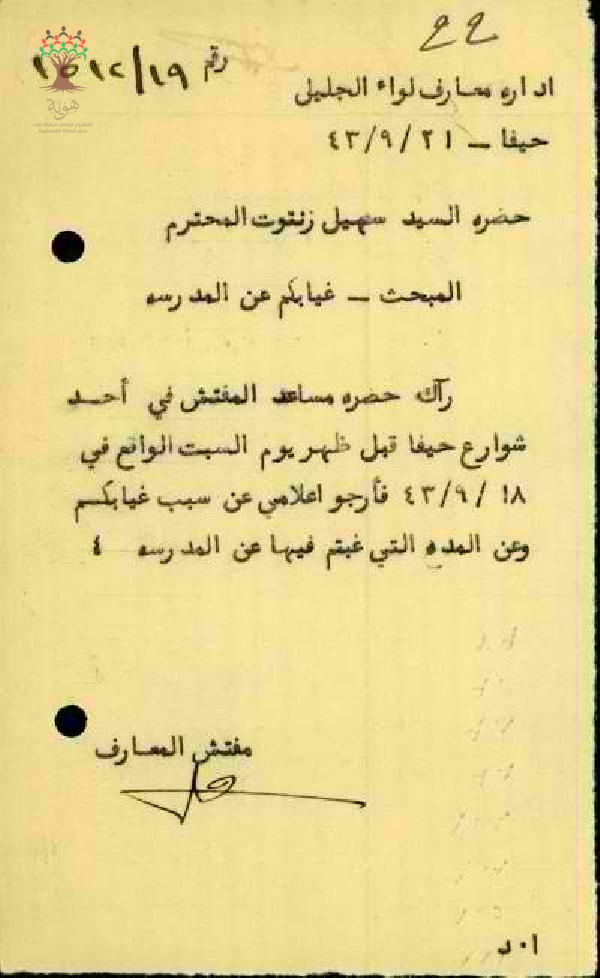 ٢٢
رقم ١٥١٢/١٩
هوية
اداره معارف لواء الجليلي
حيفا – ٢١ /٩/ ٤٣
حضره السيد سهيل زنتوت المحترم
المبحث – غيابكم عن المدرسه
رآك حضره مساعد المفتش في أحد
شوارع حيفا قبل ظهر يوم السبت الواقع في
١٨ /٩/ ٤٣ فأرجو اعلامي عن سبب غيابكم
وعن المده التي غبتم فيها عن المدرسه ٤
مفتش المعارف
ا٠د